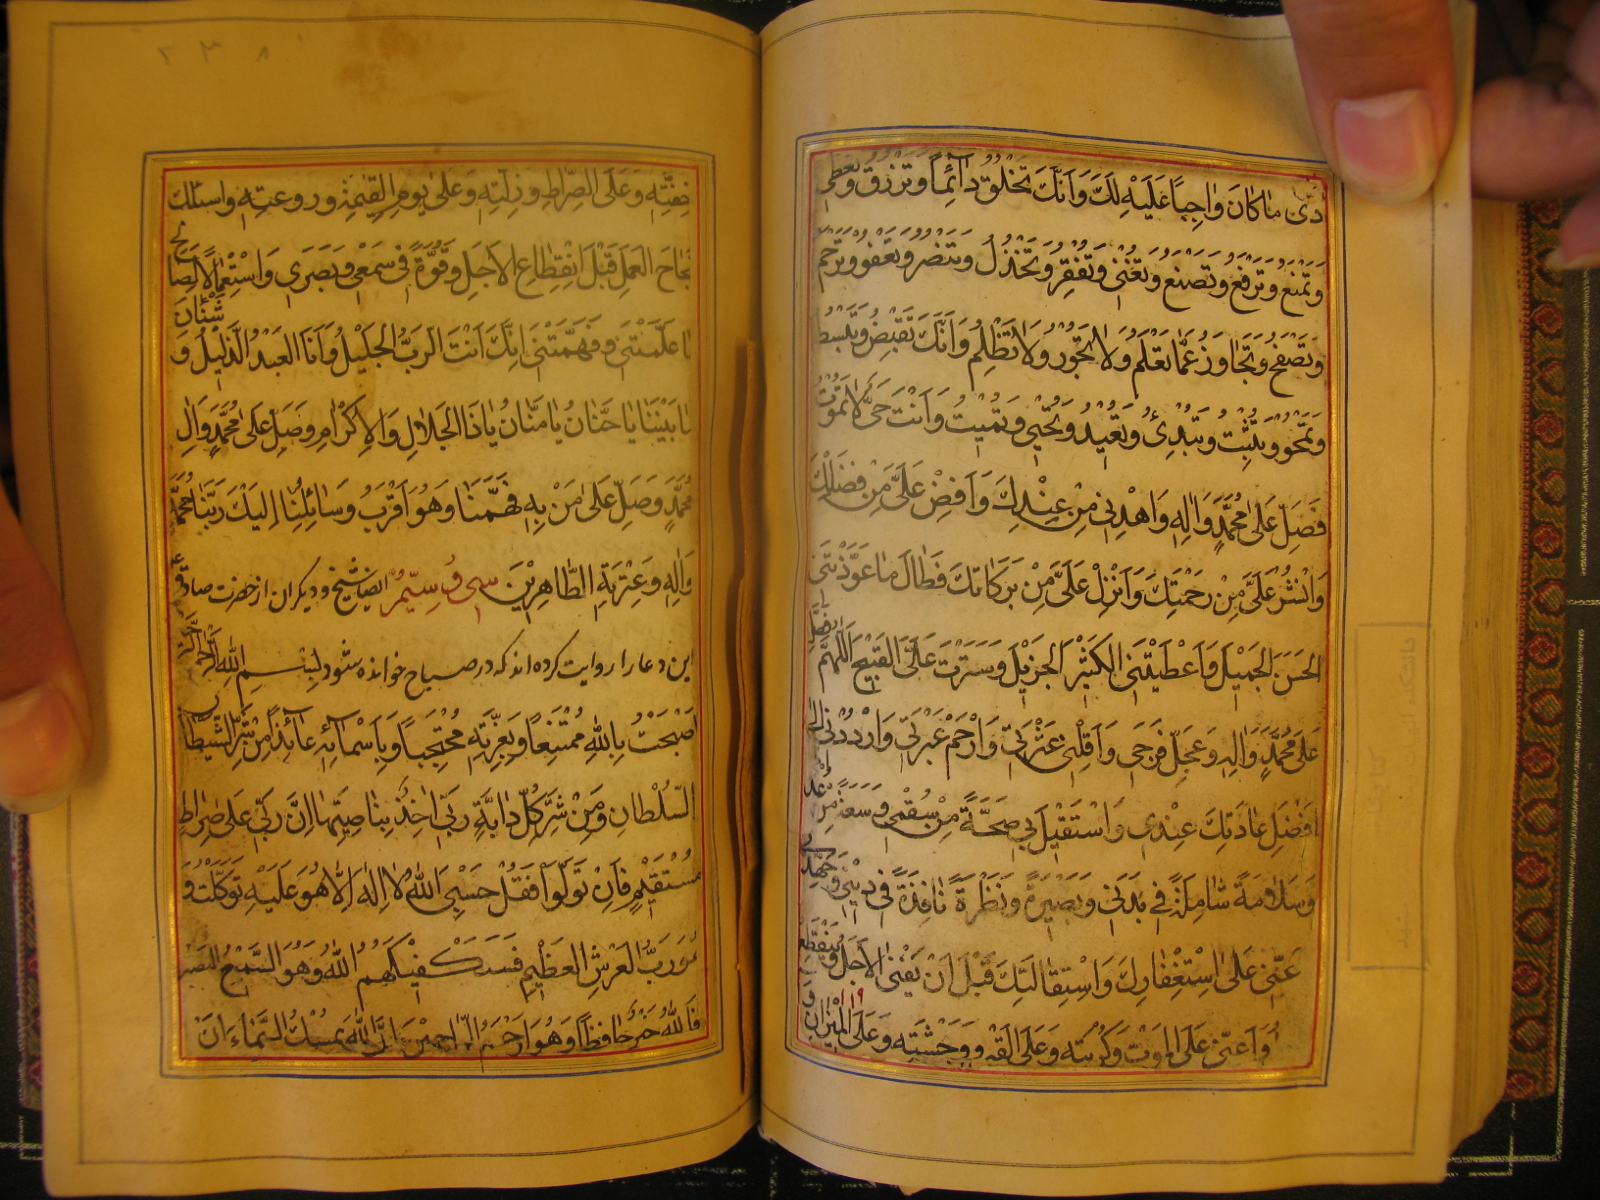 دی ما کان واجبا علیه لک وانک تخلق دائما وترزق وتعطی
وتمنع وترفع وتصنع وتغنی وتفقر وتخذل وتنصر وتعفو وترحم
وتصفح وتجاوز عما تعلم ولا تجور ولا تظلم وانک تقبض وتبسط
وتمحو وتثبت وتبدئ وتعید وتحیی وتمیت وانت حی لا تموت
فصل علی محمد واله واهدنی من عندک وافض علی من فضلک
وانشر علی من رحمتک وانزل علی من برکاتک فطال ما عودتنی
الحسن الجمیل واعطیتنی الکثیر الجزیل وسترت علی القبیح اللهم فصل
علی محمد واله وعجل فرجی واقلنی عثرتی وارحم عبرتی وارددنی الی
افضل عادتک عندی واستقبل بی صحة من سقمی وسعة من عدمی
وسلامة شاملة فی بدنی وبصیرة ونظرة نافذة فی دینی ومهدنی
عنی علی استغفارک واستقالتک قبل ان یفنی الاجل وینقطع
واعنی علی الموت وکربته وعلی القبر ووحشته وعلی المیزان و
۱۱۹
۲۳۸
خفته وعلی الصراط وزلته وعلی یوم القیمة وروعته واسئلک
نجاح العمل قبل انقطاع الاجل وقوة فی سمعی وبصری واستعمالا لصالح
ما علمتنی وفهمتنی انک انت الرب الجلیل وانا العبد الذلیل و
شتان
ما بیننا یا حنان یا منان یا ذا الجلال والاکرام وصل علی محمد وال
محمد وصل علی من به فهمنا وهو اقرب وسائلنا الیک ربنا محمد
واله وعترته الطاهرین سی و سیم ایضا شیخ و دیکران از حضرت صادق
این دعا را روایت کرده اند که در صباح خوانده شود بسم الله الرحمن الرحیم
اصبحت بالله ممتنعا وبعزته محتجبا وباسمائه عائذا من شر الشیطان
السلطان ومن شر کل دابة ربی اخذ بناصیتها ان ربی علی صراط
مستقیم فان تولوا فقل حسبی الله لا اله الا هو علیه توکلت و
هو رب العرش العظیم فسیکفیکهم الله وهو السمیع البصیر
فالله خیر حافظا وهو ارحم الراحمین ان الله یمسک السماء ان